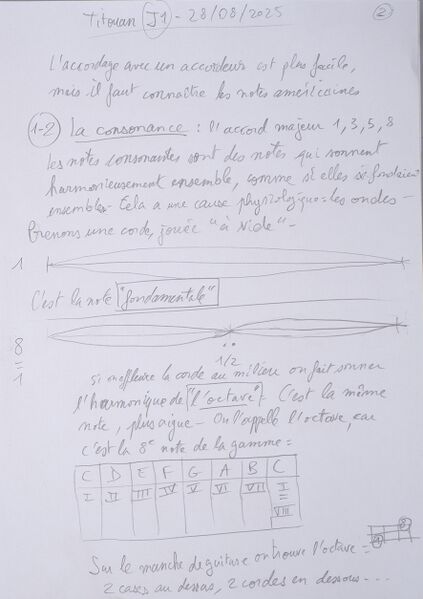 Titouan J1 - 28/08/2025 2
L'accordage avec un accordeur est plus facile,
mais il faut connaître les notes américaines
1-2 La consonance : l'accord majeur 1, 3, 5, 8
Les notes consonantes sont des notes qui sonnent
harmonieusement ensemble, comme si elles se fondaient
ensemble - Cela a une cause physiologique = les ondes -
Prenons une corde, jouée "à vide" -
1
C'est la note "fondamentale"
8
=
1
1/2
si on effleure la corde au milieu on fait sonner
l'harmonique de "l'octave" - C'est la même
note, plus aigue - On l'appelle l'octave, car
c'est la 8e note de la gamme =
C D E F G A B C
I II III IV V VI VII I
=
VIII
Sur le manche de guitare on trouve l'octave =
2 cases au dessus, 2 cordes en dessous - - -